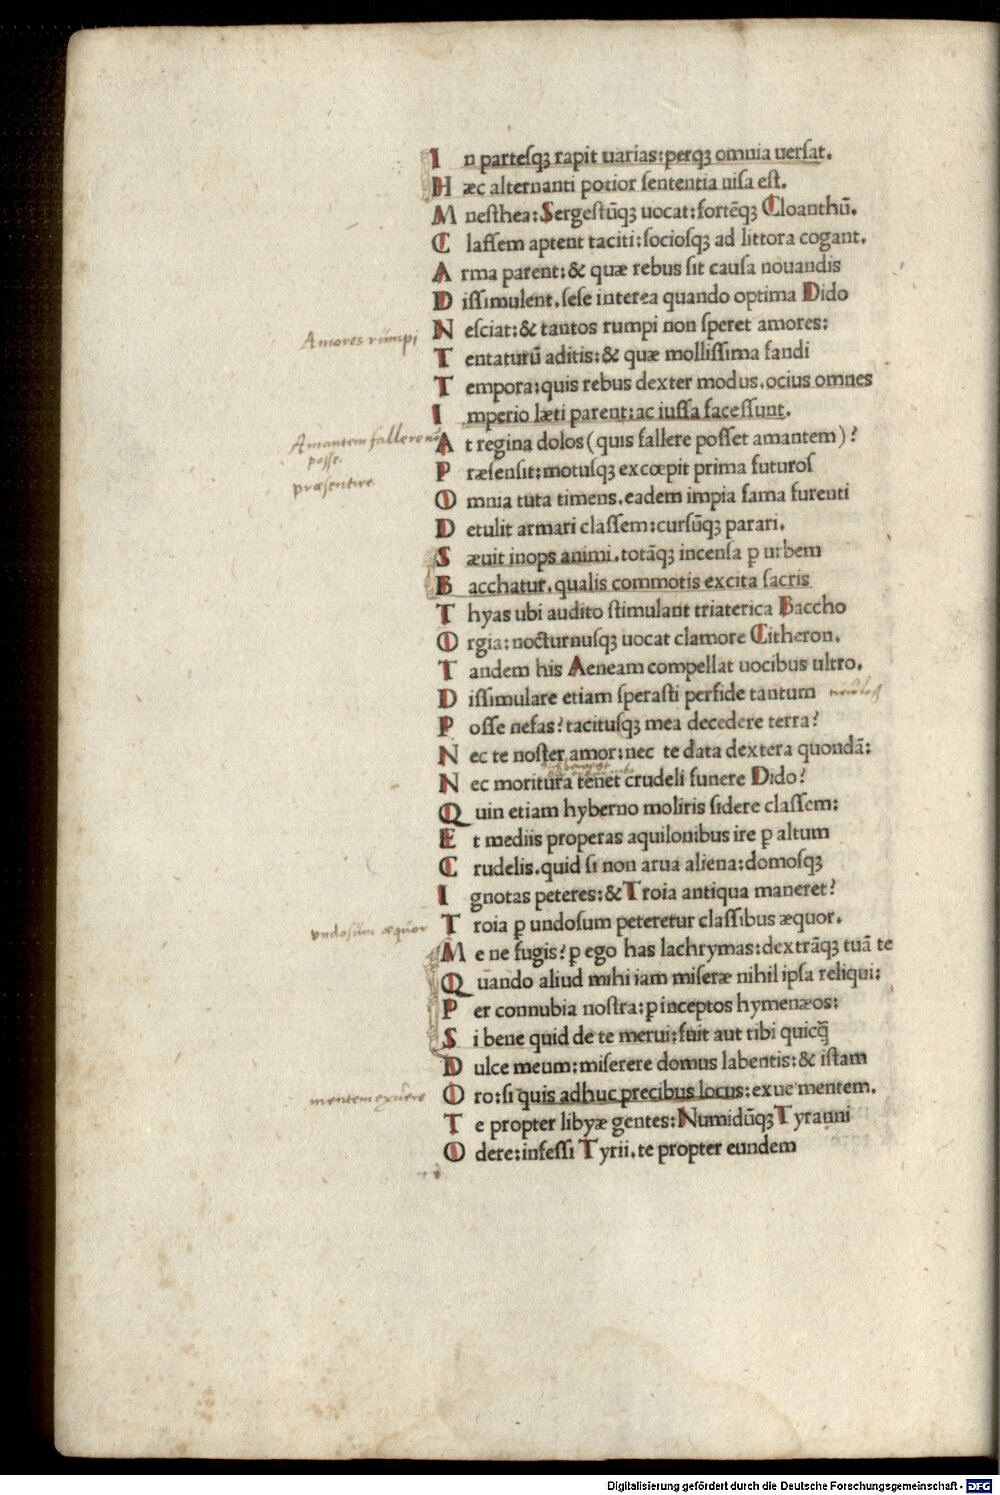 In partesqꝫ rapit uarias:perqꝫ omnia uersat.
Hæc alternanti potior sententia uisa est.
Mnesthea:Sergestūqꝫ uocat:fortēqꝫ Cloanthū.
Classem aptent taciti:sociosqꝫ ad littora cogant.
Arma parent:& quæ rebus sit causa nouandis
Dissimulent.sese interea quando optima Dido
Nesciat:& tantos rumpi non speret amores:
Amores rumpi
Tentaturū aditis:& quæ mollissima fandi
Tempora:quis rebus dexter modus.ocius omnes
Imperio læti parent:ac iussa facessunt.
At regina dolos(quis fallere posset amantem)?
Amantem fallere nō
posse.
Præsensit:motusqꝫ excœpit prima futuros
præsentire
Omnia tuta timens.eadem impia fama furenti
Detulit armari classem:cursūqꝫ parari.
Sæuit inops animi.totāqꝫ incensa ꝑ urbem
Bacchatur.qualis commotis excita sacris
Thyas ubi audito stimulant triaterica Baccho
Orgia:nocturnusqꝫ uocat clamore Citheron.
Tandem his Aeneam compellat uocibus ultro.
Dissimulare etiam sperasti perfide tantum
Posse nefas?tacitusqꝫ mea decedere terra?
Nec te noster amor:nec te data dextera quondā:
Nec moritura tenet crudeli funere Dido?
Quin etiam hyberno moliris sidere classem:
Et mediis properas aquilonibus ire ꝑ altum
Crudelis.quid si non arua aliena:domosqꝫ
Ignotas peteres:&Troia antiqua maneret?
Troia ꝑ undosum peteretur classibus æquor.
vndosum æquor
Me ne fugis?ꝑ ego has lachrymas:dextrāqꝫ tuā te
Quando aliud mihi iam miseræ nihil ipsa reliqui:
Per connubia nostra:ꝑ inceptos hymenæos:
Si bene quid de te merui:fuit aut tibi quicq̄
Dulce meum:miserere domus labentis:& istam
Oro:si quis adhuc precibus locus:exue mentem.
mentem exuere
Te propter libyæ gentes:NumidūqꝫTyranni
Odere:infessi Tyrii.te propter eundem
Digitalisierung gefördert durch die Deutsche Forschungsgemeinschaft - DFG